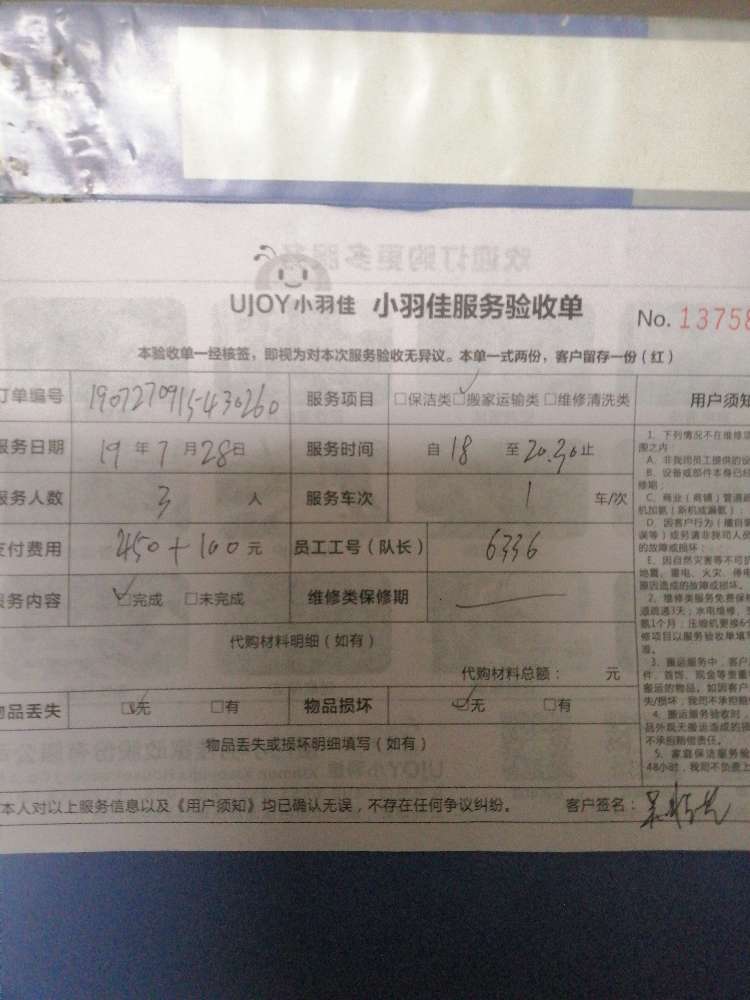 UJOY小羽佳 小羽佳服务验收单
No. 13758
本验收单一经核签，即视为对本次服务验收无异议。本单一式两份，客户留存一份（红）
订单编号 1907270915430260 服务项目 □保洁类□搬家运输类□维修清洗类 用户须知
服务日期 19年7月28日 服务时间 自18至20.30止
服务人数 3人 服务车次 1车/次
支付费用 450+100元 员工工号（队长） 6336
服务内容 □完成 □未完成 维修类保修期
代购材料明细（如有）
代购材料总额： 元
物品丢失 □无 □有 物品损坏 □无 □有
物品丢失或损坏明细填写（如有）
本人对以上服务信息以及《用户须知》均已确认无误，不存在任何争议纠纷。 客户签名：
1、下列情况不在维修
围之内：
A、非我司员工提供的
B、设备或部件本身已经
修期；
C、商业（商铺）管道
机加氨（新机或漏氨）；
D、因客户行为（
误等）或另请非我司人员
的故障或损坏；
E、因自然灾害等不可
地震、雷电、火灾、停电
原因造成的故障或损坏。
2、维修类服务免费保
道疏通3天；水电维修、
氨1个月；压缩机更换6个
修项目以服务验收单填写
准。
3、搬运服务中，客户
件、首饰、现金等贵重
搬运的物品。如因客户
失/损坏，我司不承担赔
4、搬运服务验收时，
品外观无搬运造成的
不承担赔偿责任。
5、家庭保洁服务验
48小时，我司不负责上